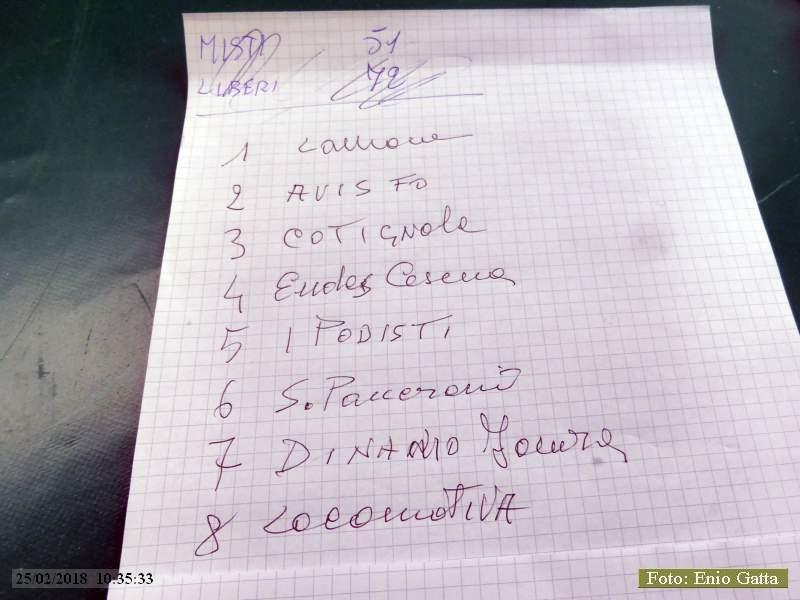 MISTI 51
LIBERI 72
1 Lamone
2 AVIS FO
3 COTIGNOLA
4 Endas Cesena
5 I PODISTI
6 S. Pancrazio
7 DINAMO
8 LOCOMOTIVA
25/02/2018 10:35:33
Foto: Enio Gatta